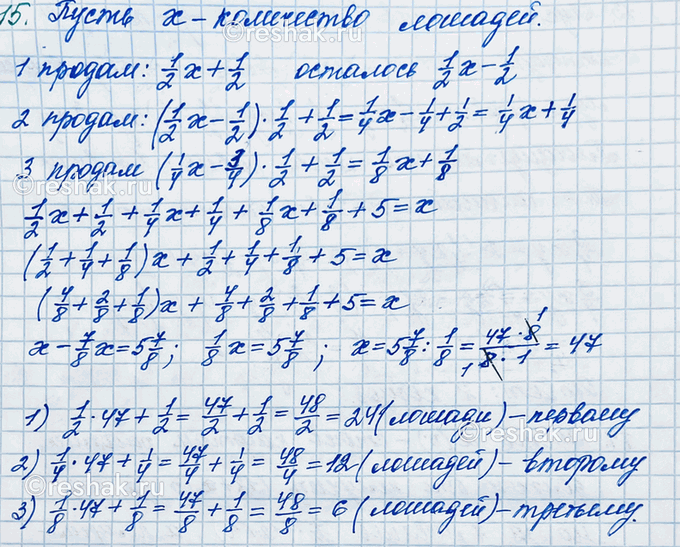 15. Пусть x - количество лошадей.
1 продам: 1/2 x + 1/2 осталось 1/2 x - 1/2
2 продам: (1/2 x - 1/2) · 1/2 + 1/2 = 1/4 x - 1/4 + 1/2 = 1/4 x + 1/4
3 продам (1/4 x - 3/4) · 1/2 + 1/2 = 1/8 x + 1/8
1/2 x + 1/2 + 1/4 x + 1/4 + 1/8 x + 1/8 + 5 = x
(1/2 + 1/4 + 1/8) x + 1/2 + 1/4 + 1/8 + 5 = x
(4/8 + 2/8 + 1/8) x + 4/8 + 2/8 + 1/8 + 5 = x
x - 7/8 x = 5 7/8 ; 1/8 x = 5 7/8 ; x = 5 7/8 : 1/8 = 47 · 8 1 / 8 1 · 1 = 47
1) 1/2 · 47 + 1/2 = 47/2 + 1/2 = 48/2 = 24 (лошади) - первому
2) 1/4 · 47 + 1/4 = 47/4 + 1/4 = 48/4 = 12 (лошадей) - второму
3) 1/8 · 47 + 1/8 = 47/8 + 1/8 = 48/8 = 6 (лошадей) - третьему.